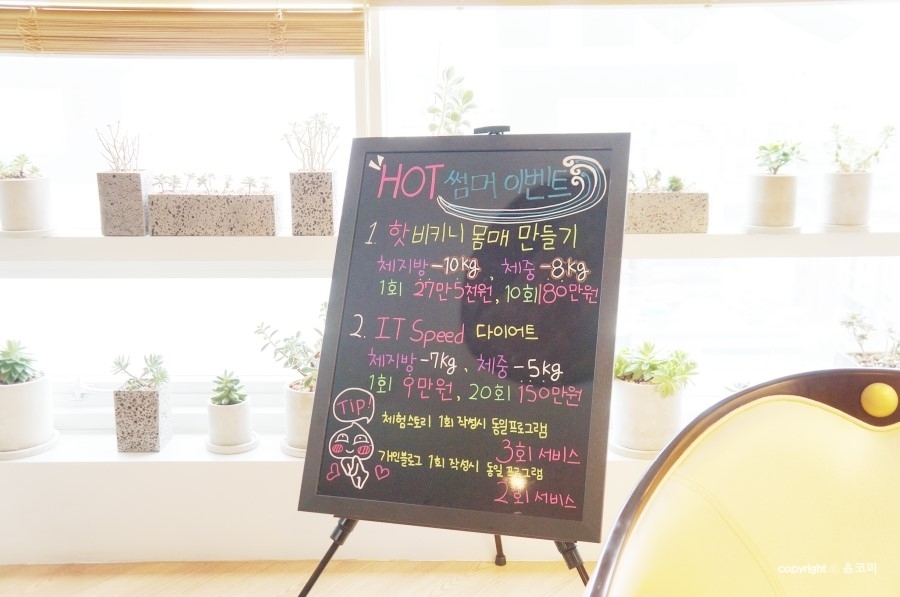 HOT 썸머 이벤트
1. 핫 비키니 몸매 만들기
체지방 -10kg, 체중 -8kg
1회 27만 5천원, 10회 180만원
2. IT Speed 다이어트
체지방 -7kg, 체중 -5kg
1회 9만원, 20회 150만원
TIP!
체험스토리 1회 작성시 동일프로그램
3회 서비스
개인블로그 1회 작성시 동일 프로그램
2회 서비스
copyright © 윤코미